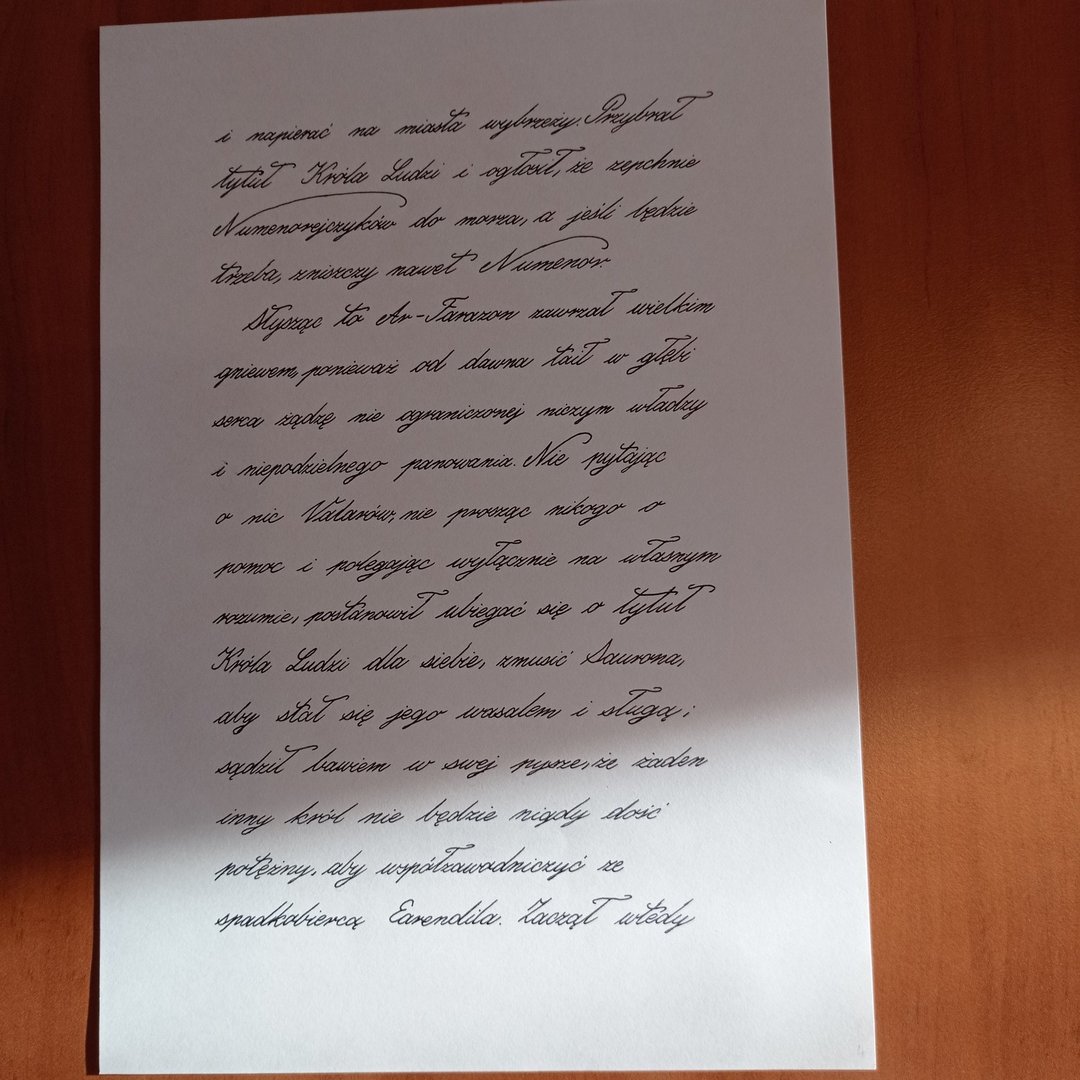 i napierać na miasta wybrzeży. Przybrał
tytuł Króla Ludzi i ogłosił, że zepchnie
Numenorejczyków do morza, a jeśli będzie
trzeba, zniszczy nawet Numenor.
Słysząc to Ar-Farazon zawrzał wielkim
gniewem, ponieważ od dawna taił w głębi
serca żądzę nie ograniczonej niczym władzy
i niepodzielnego panowania. Nie pytając
o nic Valarów, nie prosząc nikogo o
pomoc i polegając wyłącznie na własnym
rozumie, postanowił ubiegać się o tytuł
Króla Ludzi dla siebie, zmusić Saurona,
aby stał się jego wasalem i sługą;
sądził bowiem w swej pysze, że żaden
inny król nie będzie nigdy dość
potężny, aby współzawodniczyć ze
spadkobiercą Earendila. Zaczął wtedy
4